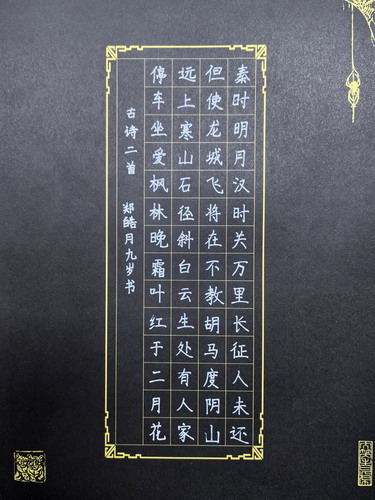 秦时明月汉时关万里长征人未还
但使龙城飞将在不教胡马度阴山
远上寒山石径斜白云生处有人家
停车坐爱枫林晚霜叶红于二月花
古诗二首 郑皓月九岁书